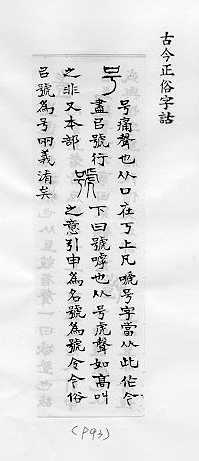 古今正俗字詁
号
号痛聲也从口在丂上凡嗁号字當从此作今
盡㠯號行
之非又本部
號
下曰號嘑也从号虎聲如高叫
之意引申為名號為號令今俗
㠯號為号而義淆矣
(P93)